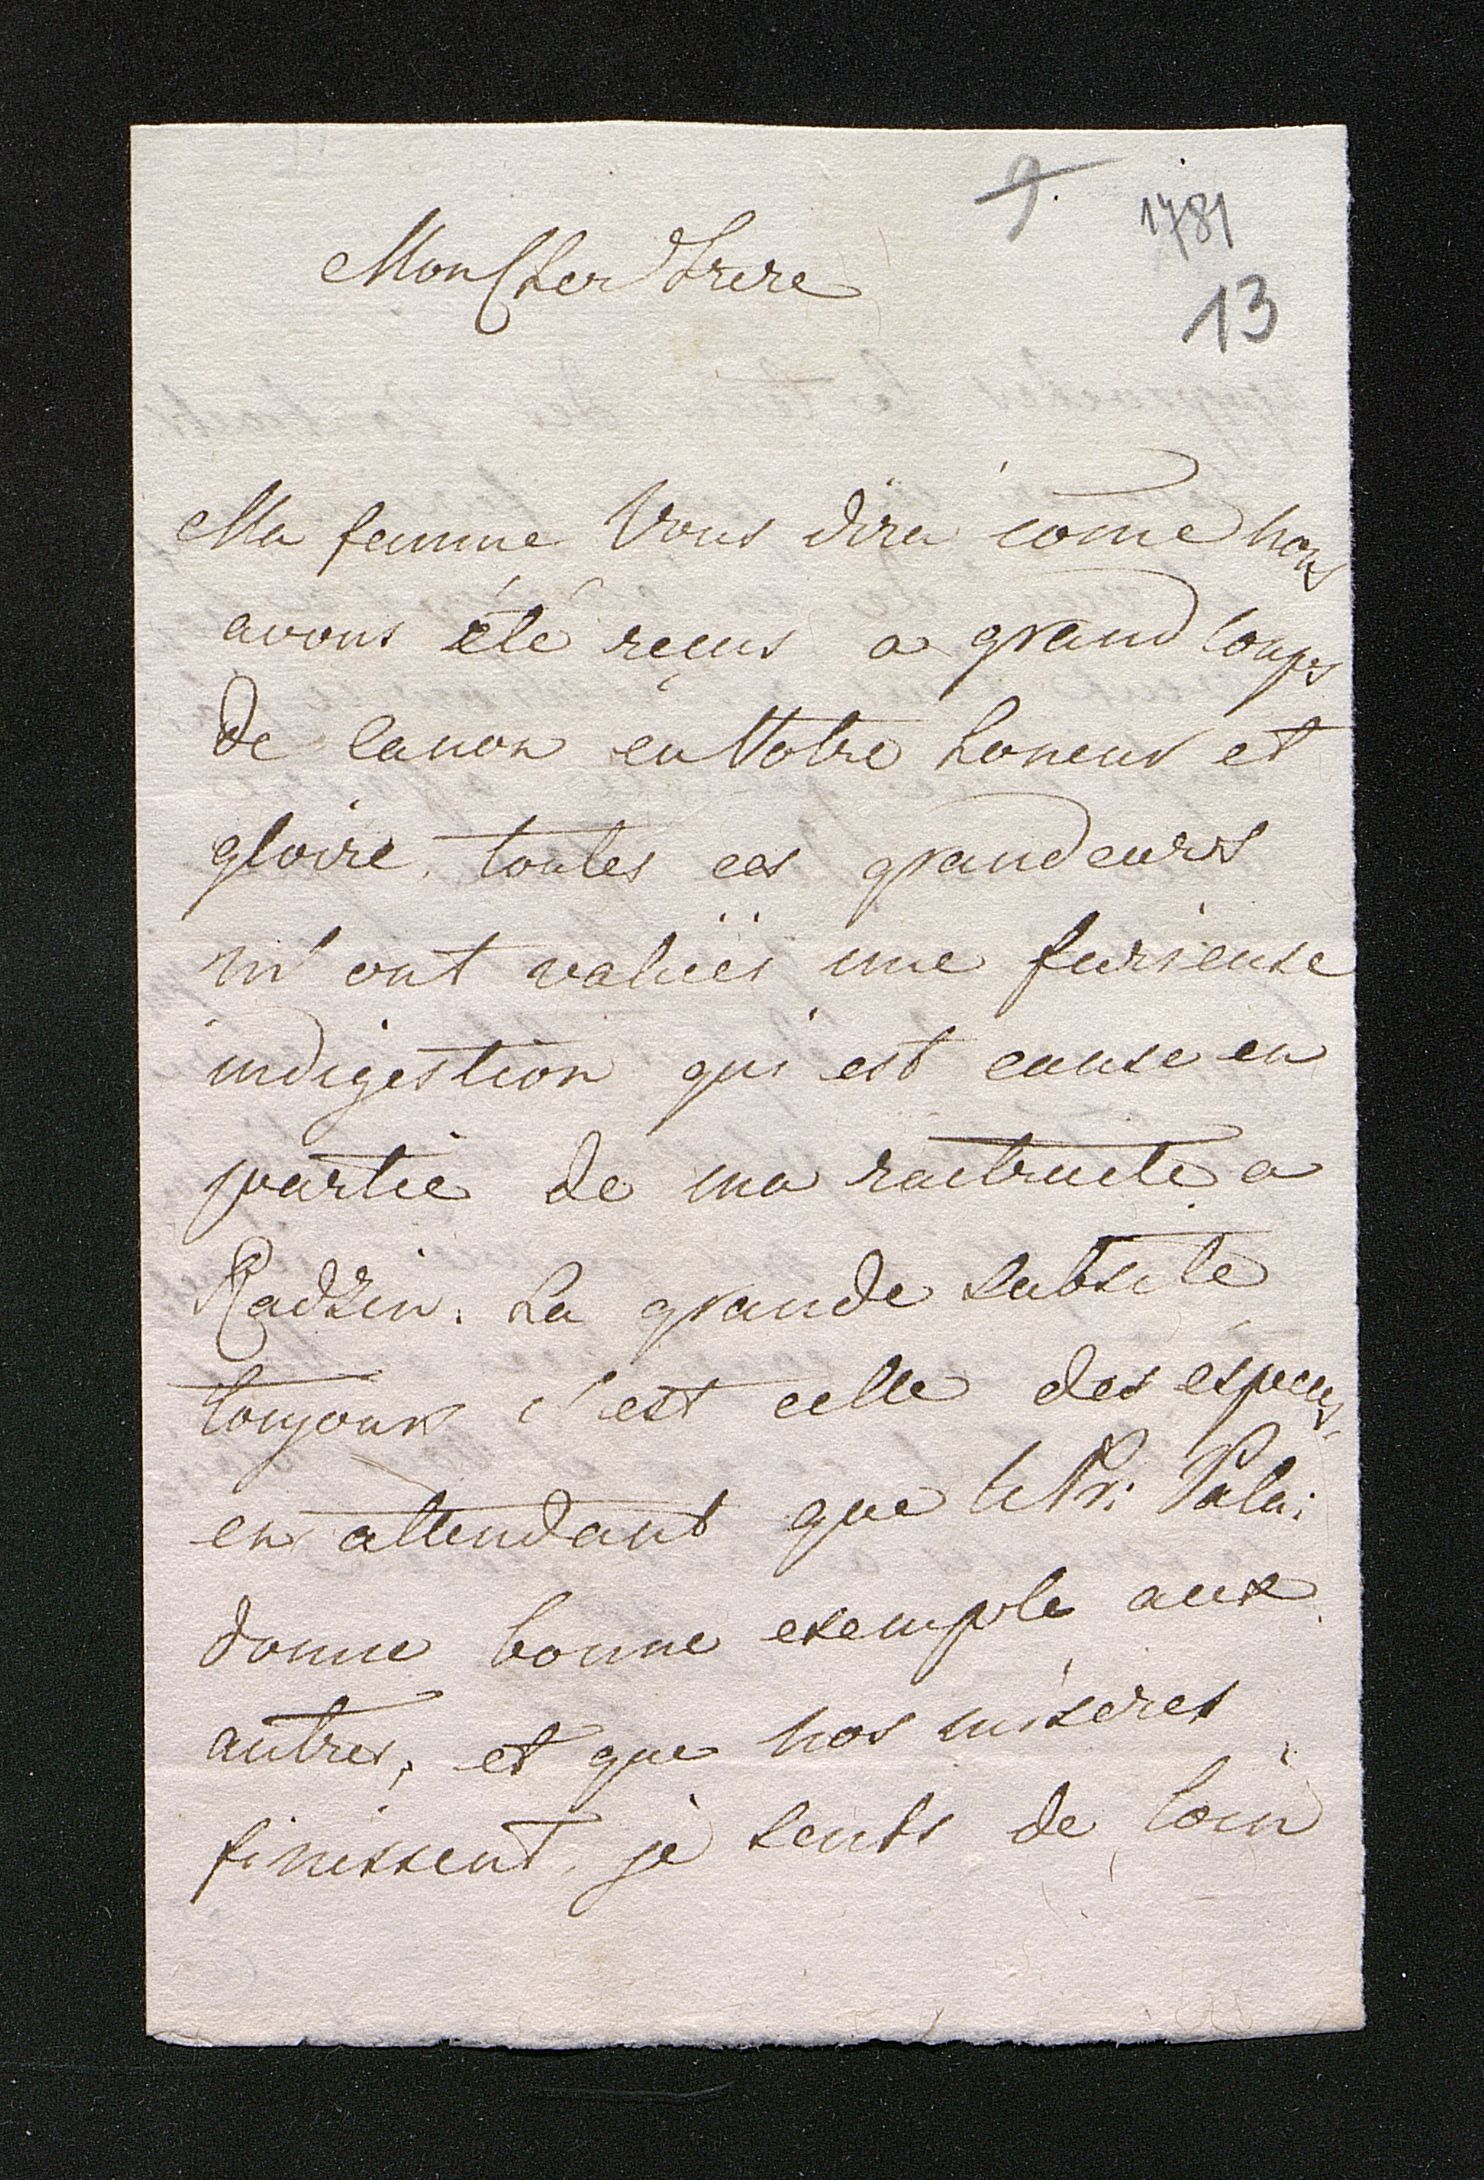 9.
1781
13
Mon Cher Frere
Ma femme Vous dira come nous
avons été reçus a grand coups
de canon en Votre honeur et
gloire, toutes ces grandeurs
m'ont valuës une furieuse
indigestion qui est cause en
partie de ma raitraite a
Radzin. La grande subsiste
toujours c'est celle des especes,
en attendant que le Pr: Pala:
donne bonne exemple aux
autres, et que nos miseres
finissent, je sents de loin